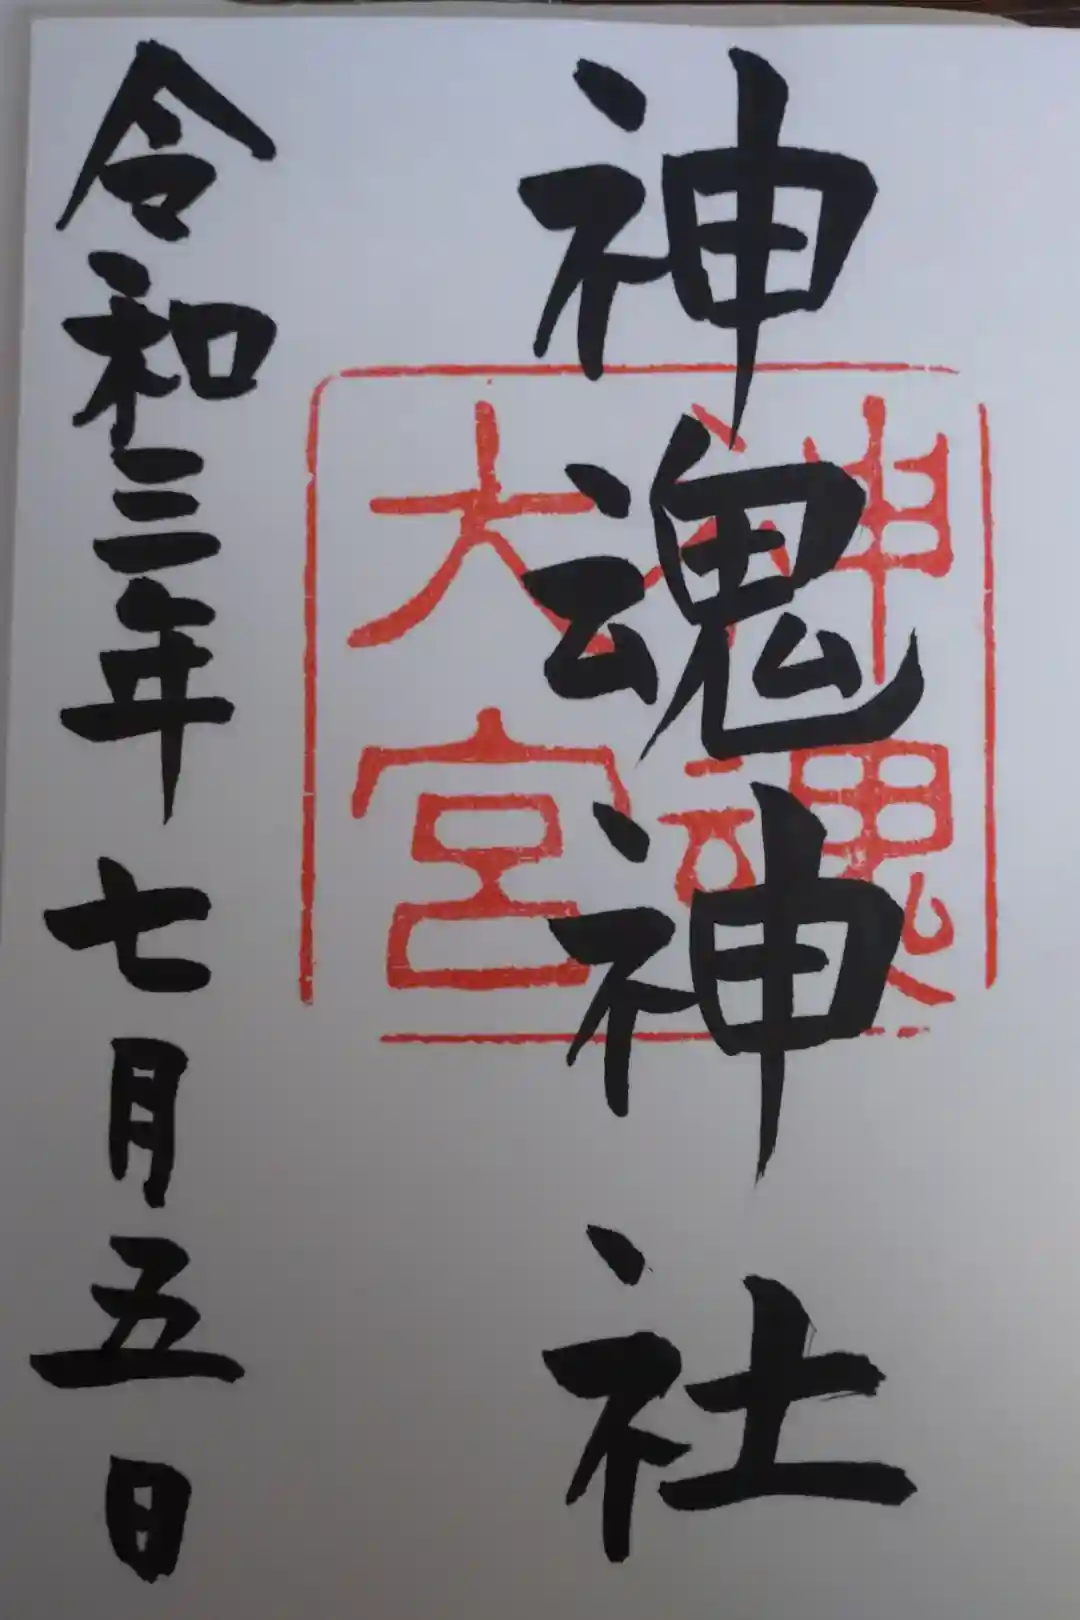 神魂神社
神魂
大宮
令和三年七月五日